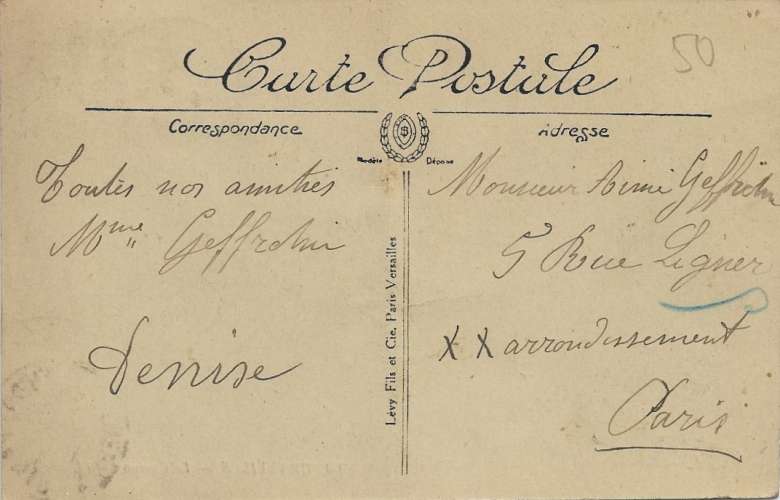 50
Carte Postale
Correspondance
Adresse
Modèle Déposé
Toutes nos amitiés
Mme Geffrotin
Denise
Lévy Fils et Cie, Paris Versailles
Monsieur Aimé
5 Rue Ligner
XX arrondissement
Paris